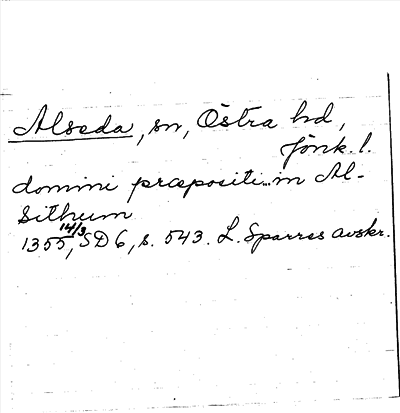 Alseda, sn, Östra hd,
Jönk. l.
domini præpositi.. in Al-
sithum
1355 14/3, SD 6, s. 543. L. Sparres avskr.